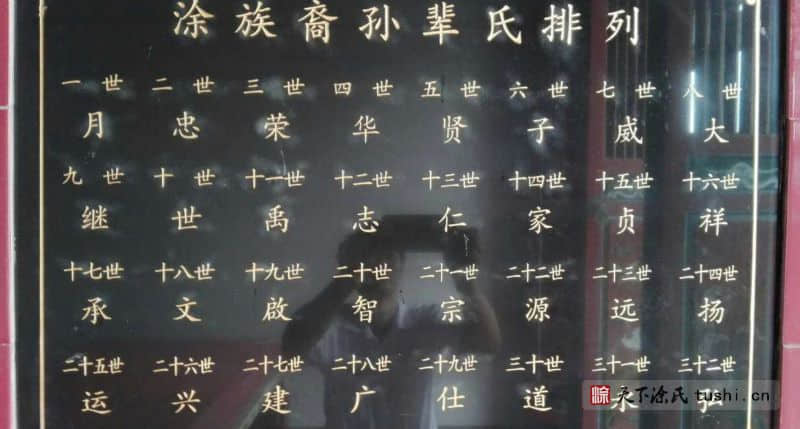 涂族裔孙辈氏排列
一世 二世 三世 四世 五世 六世 七世 八世
月 忠 荣 华 贤 子 威 大
九世 十世 十一世 十二世 十三世 十四世 十五世 十六世
继 世 禹 志 仁 家 贞 祥
十七世 十八世 十九世 二十世 二十一世 二十二世 二十三世 二十四世
承 文 啟 智 宗 源 远 扬
二十五世 二十六世 二十七世 二十八世 二十九世 三十世 三十一世 三十二世
运 兴 建 广 仕 道
天下涂氏 tushi.cn